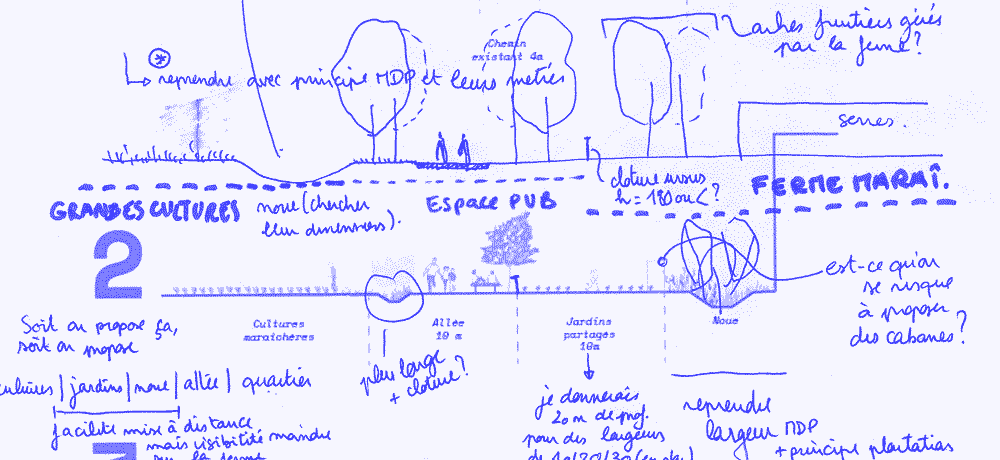 arbres fruitiers gérés
par la ferme?
Chemin
existant 4m
* reprendre avec principe MDP et leurs métrés
serres.
cloture
h = 180 ou <?
FERME MARAÎ.
GRANDES CULTURES
noue (chercher
leur dimensions).
Espace PUB
2
est-ce qu'on
se risque
à proposer
des cabanes?
Soit on propose ça,
soit on propose
Cultures
maraichères
Allée
10 m
Jardins
partagés
10m
Noue
cultures | jardins | noue | allée | quartier
plus large
+ cloture?
facilite mise à distance
mais visibilité moindre
sur la ferme
je donnerais
20m de prof.
pour des largeurs
de 10/20/30
reprendre
largeur MDP
+ principe plantations